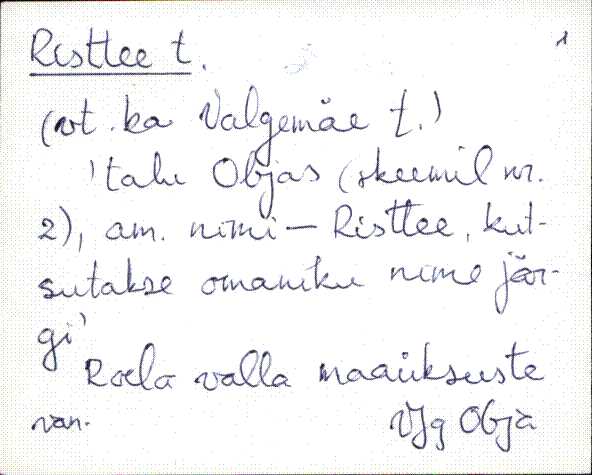 Risttee t.
1
(vt. ka Valgemäe t.)
'talu Objas (skeemil nr.
2), am. nimi — Risttee, kut-
sutakse omaniku nime jär-
gi'
Roela valla maaüksuste
van.
VJg Obja